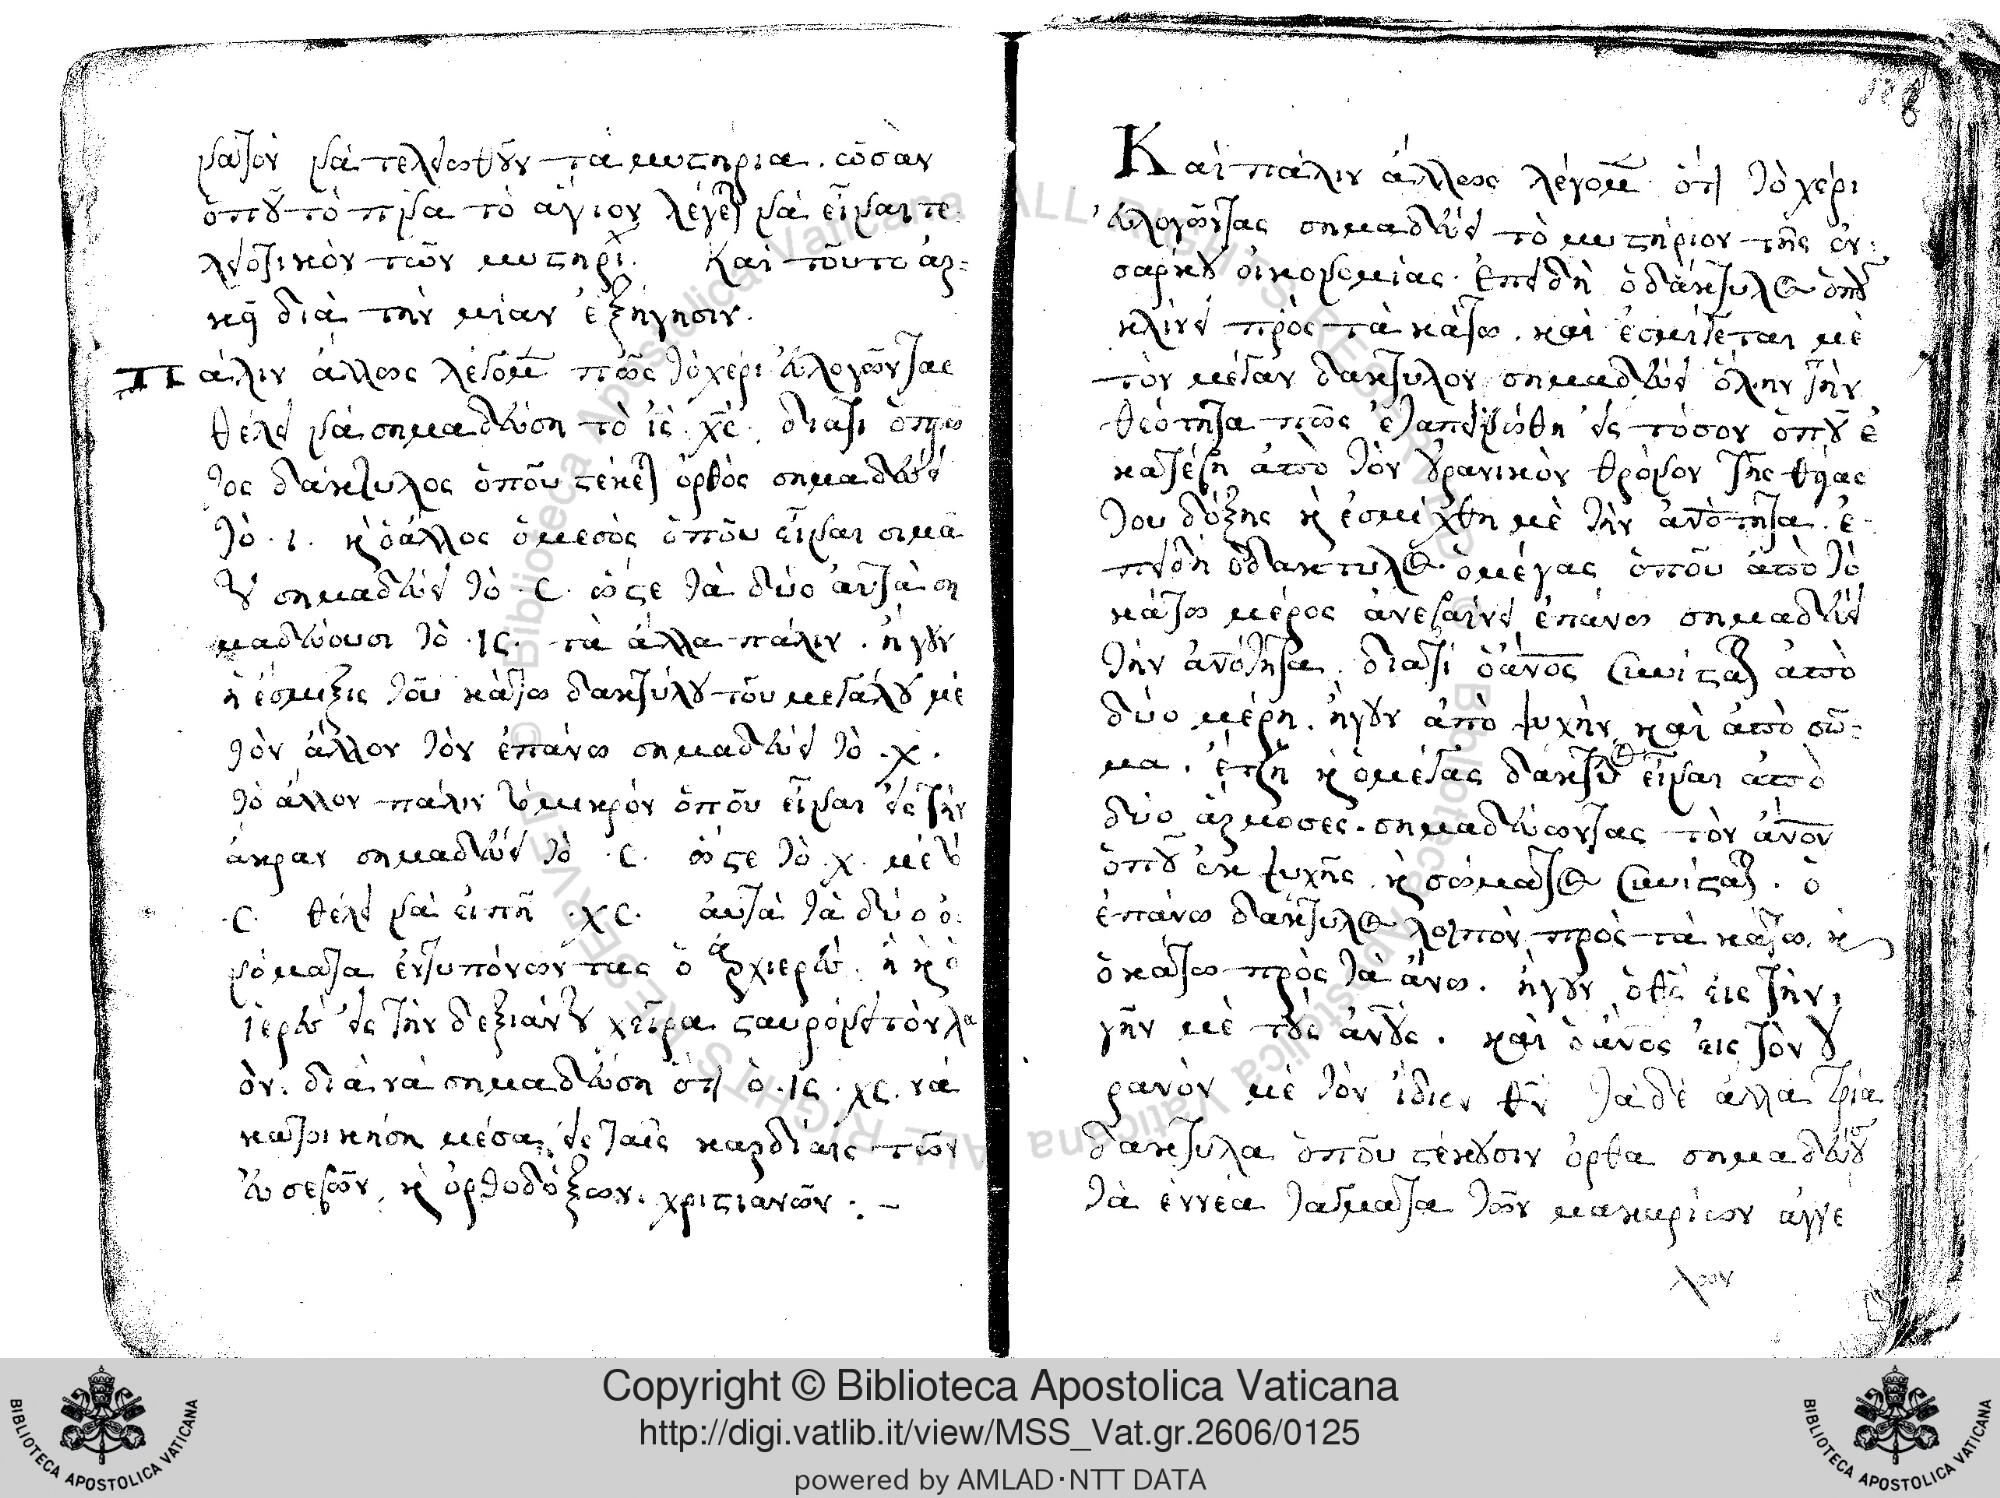 νατον νὰ τελειωθοῦν τὰ μυστήρια. ὡσὰν
ὁποῦ τὸ πνα τὸ ἅγιον λέγεται νὰ εἶναι τε
λειοτικὸν τῶν μυστηρί. Καὶ τοῦτο ἀρ
κῇ διὰ τὴν μίαν ἐξήγησιν.
Πάλιν ἄλλως λέγομεν πῶς τὸ χέρι εὐλογῶντας
θέλει νὰ σημαδεύση τὸ ις χς. διατὶ ὁ πρῶ
τος δάκτυλος ὁποῦ στέκει ὀρθὸς σημαδεύει
τὸ ι. κ ὁ ἄλλος ὁ μεσὸς ὁποῦ εἶναι σιμὰ
του σημαδεύει τὸ ς. ὥστε τὰ δύο αὐτὰ ση
μαδεύουσι τὸ ις. τὰ ἄλλα πάλιν. ἤγουν
ἡ ἔσμιξις τοῦ κάτω δακτύλου τοῦ μεγάλου μὲ
τὸν ἄλλον τὸν ἐπάνω σημαδεύει τὸ χ.
τὸ ἄλλον πάλιν τὸ μικρὸν ὁποῦ εἶναι εἰς τὴν
ἄκραν σημαδεύει τὸ ς. ὥστε τὸ χ. μὲ τὸ
ς. θέλει νὰ εἰπῆ χς. αὐτὰ τὰ δύο ὀ
νόματα ἐντυπόνωντας ὁ ἀρχιερεὺς. ἢ κ ὁ
ἱερεὺς εἰς τὴν δεξιάν του χεῖρα σταυρόνει τὸν λα
όν. διὰ νὰ σημαδεύση ὅτι ὁ ις χς. νὰ
κατοικήση μέσα εἰς ταῖς καρδίαις τῶν
εὐσεβῶν, κ ὀρθοδόξων χριστιανῶν.
Καὶ πάλιν ἄλλως λέγομεν ὅτι τὸ χέρι
εὐλογῶντας σημαδεύει τὸ μυστήριον τῆς ἐν
σαρκου οἰκονομίας. ἐπειδὴ ὁ δάκτυλος ὁποῦ
κλίνει πρὸς τὰ κάτω. καὶ ἐσμίγεται μὲ
τὸν μέγαν δάκτυλον σημαδεύει ὅλην τὴν
θεότητα πῶς ἐταπεινώθη εἰς τόσον ὁποῦ ἐ
κατέβη ἀπὸ τὸν οὐρανικὸν θρόνον τῆς θείας
του δόξης κ ἐσμίχθη μὲ τὴν ἀνότητα. ἐ
πειδὴ ὁ δάκτυλος ὁ μέγας ὁποῦ ἀπὸ τὸ
κάτω μέρος ἀνεβαίνει ἐπάνω σημαδεύει
τὴν ἀνότητα. διατὶ ὁ ἄνος συνίσταται ἀπὸ
δύο μέρη. ἤγουν ἀπὸ ψυχὴν, καὶ ἀπὸ σῶ
μα. ἔτζη κ ὁ μέγας δάκτυλος εἶναι ἀπὸ
δύο ἁρμοσες. σημαδεύωντας τὸν ἄνον
ὁποῦ ἐκ ψυχῆς κ σώματος συνίσταται. ὁ
ἐπάνω δάκτυλος λοιπὸν πρὸς τὰ κάτω, κ
ὁ κάτω πρὸς τὰ ἄνω. ἤγουν ὁ θς εἰς τὴν
γῆν μὲ τοὺς ἀνους. καὶ ὁ ἄνος εἰς τὸν οὐ
ρανὸν μὲ τὸν ἴδιον θν τὰ δὲ ἄλλα τρία
δάκτυλα ὁποῦ στέκουσιν ὀρθα σημαδεύουν
τὰ ἐννέα τάγματα τῶν μακαρίων ἀγγέ
λων
Copyright © Biblioteca Apostolica Vaticana
http://digi.vatlib.it/view/MSS_Vat.gr.2606/0125
powered by AMLAD·NTT DATA
BIBLIOTECA APOSTOLICA VATICANA
BIBLIOTECA APOSTOLICA VATICANA